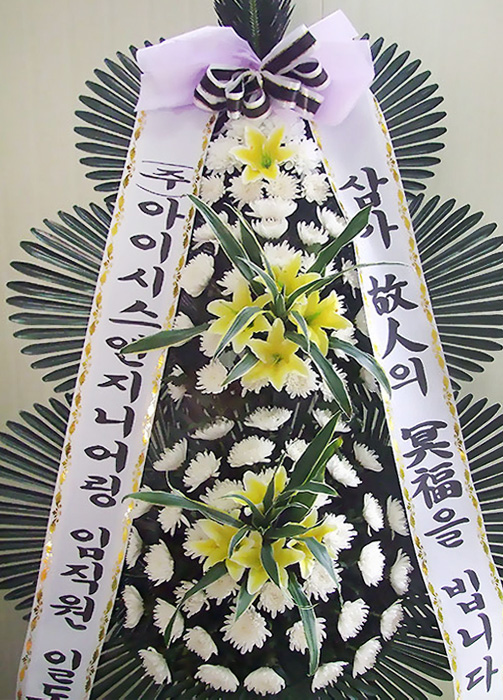 (주)아이시스엔지니어링 임직원 일동
삼가 故人의 冥福을 빕니다